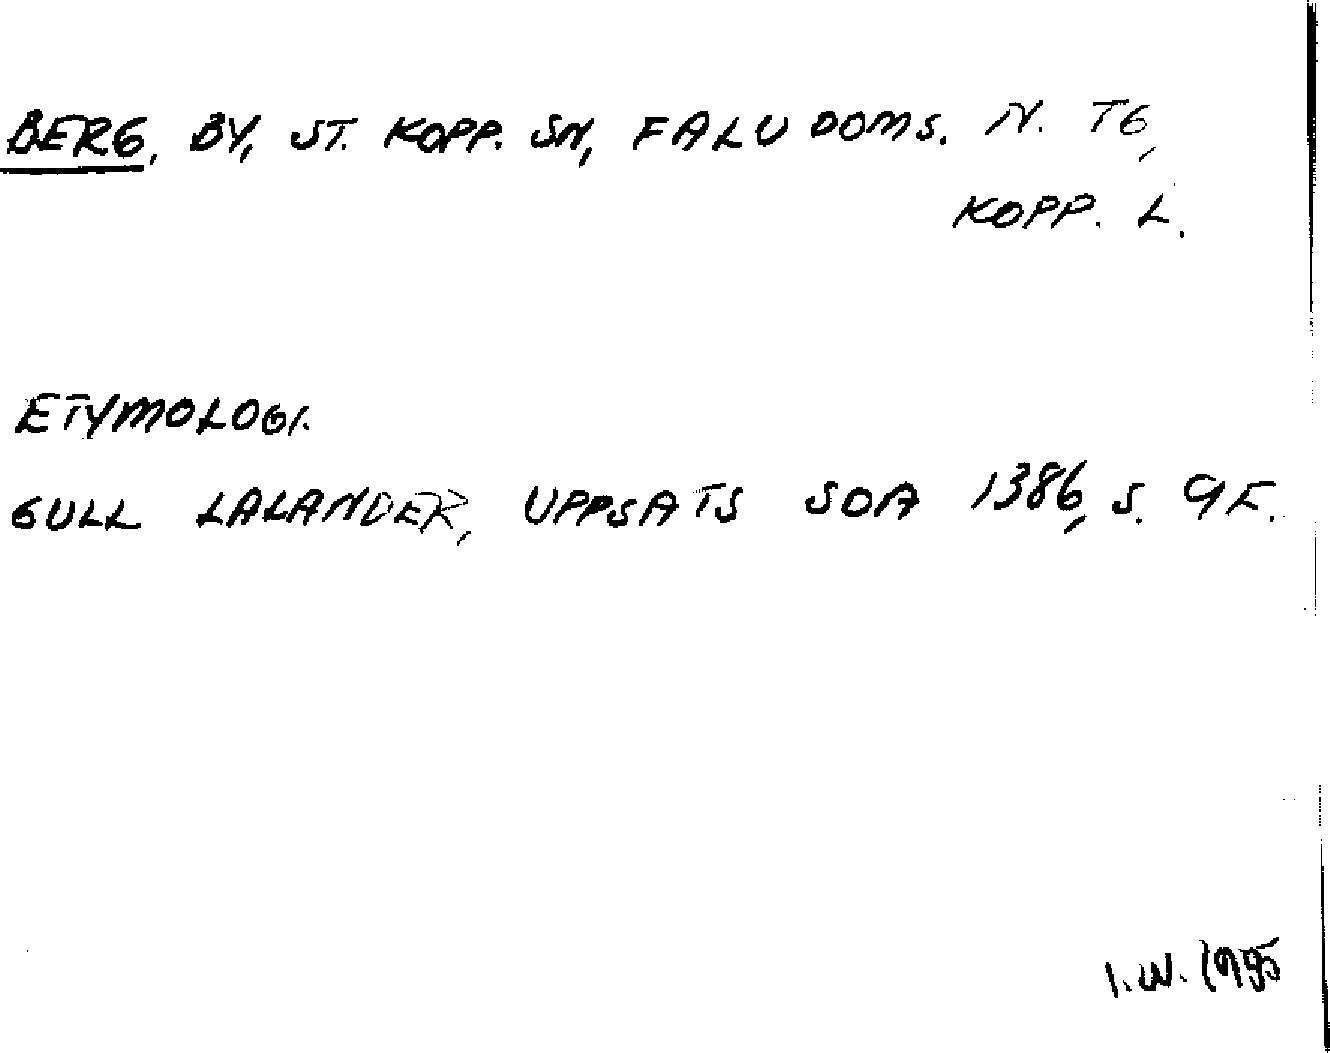 BERG, BY, ST. KOPP. SN, FALU DOMS. N. TG,
KOPP. L.
ETYMOLOGI.
GULL LALANDER, UPPSATS SOA 1386, S. 9 F.
I.W. 1995